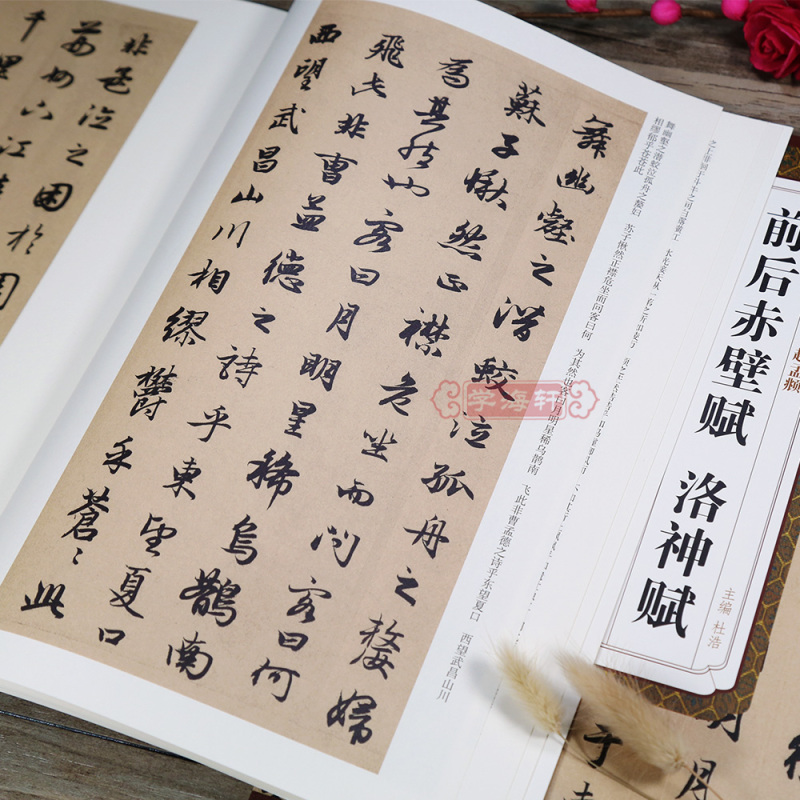 前后赤壁赋 洛神赋
赵孟頫
主编 杜浩
舞幽壑之潜蛟泣孤舟之嫠妇 苏子愀然正襟危坐而问客曰何 为其然也客曰月明星稀乌鹊南 飞此非曹孟德之诗乎东望夏口 西望武昌山川
相缪郁乎苍苍此
舞幽壑之潛蛟泣孤舟之嫠婦
蘇子愀然正襟危坐而问客曰何
爲其然也客曰月明星稀烏鵲南
飛此非曹孟德之詩乎東望夏口
西望武昌山川相繆鬱乎蒼〻此
非孟德之困於周
荊州下江
千里
学海轩